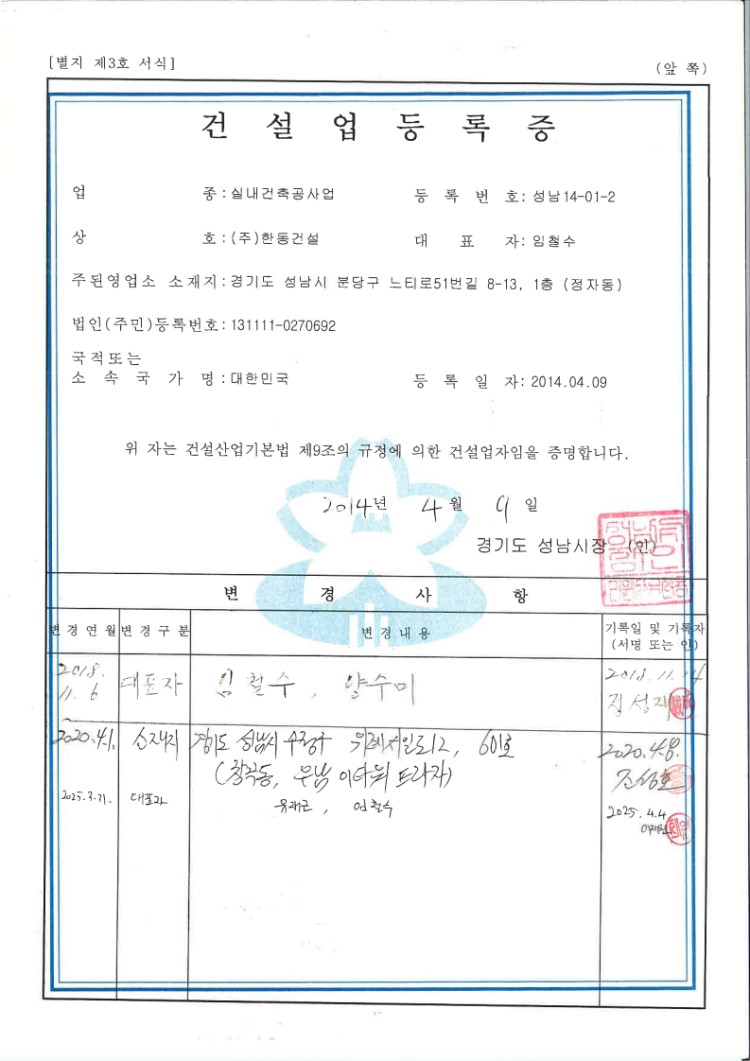 [별지 제3호 서식]
(앞 쪽)
건 설 업 등 록 증
업 종 : 실내건축공사업
등 록 번 호: 성남14-01-2
상 호 : (주)한동건설
대 표 자: 임철수
주된영업소 소재지: 경기도 성남시 분당구 느티로51번길 8-13, 1층 (정자동)
법인(주민)등록번호: 131111-0270692
국적또는
소 속 국 가 명 : 대한민국
등 록 일 자: 2014.04.09
위 자는 건설산업기본법 제9조의 규정에 의한 건설업자임을 증명합니다.
2014년 4월 9일
경기도 성남시장 (인)
변 경 사 항
변 경 연 월
변 경 구 분
변 경 내 용
기록일 및 기록자
(서명 또는 인)
2018.
11. 6
대표자
임철수, 양수미
2018. 11. 14
2020.4.1.
소재지
경기도 성남시 수정구 위례서일로12, 601호
(창곡동, 우남이다위트라자)
2020.4.8.
조성호
2025.3.31.
대표자
유재근, 임철수
2025.4.4